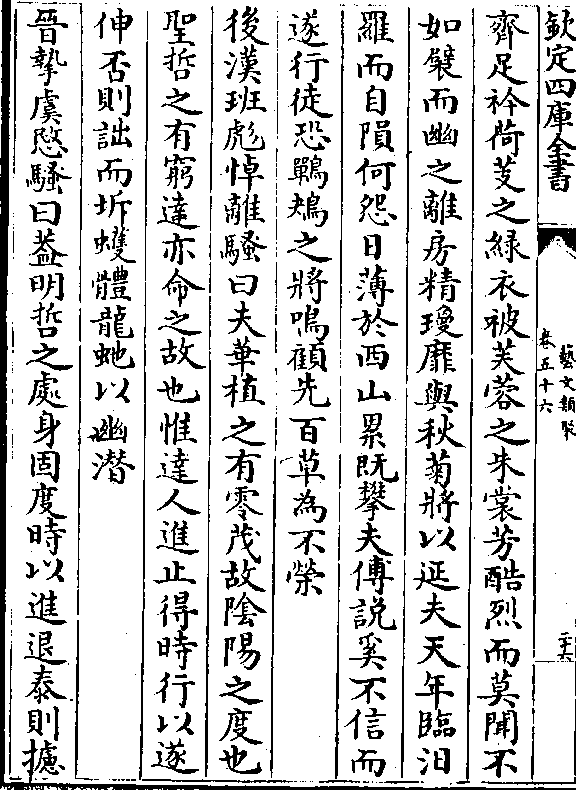 欽定四庫全書
藝文類聚
卷五十六
二十六
齊足衿荷芰之緑衣被芙蓉之朱裳芳酷烈而莫聞不
如襞而幽之離房精瓊靡與秋菊將以延夫天年臨汨
羅而自隕何怨日薄於西山累既攀夫傅説奚不信而
遂行徒恐鷤鴂之將鳴顧先百草為不榮
後漢班彪悼離騷曰夫華植之有零茂故隂陽之度也
聖哲之有窮達亦命之故也惟達人進止得時行以遂
伸否則詘而坼蠖體龍虵以幽潜
晉摯虞愍騷曰葢明哲之處身固度時以進退泰則攄